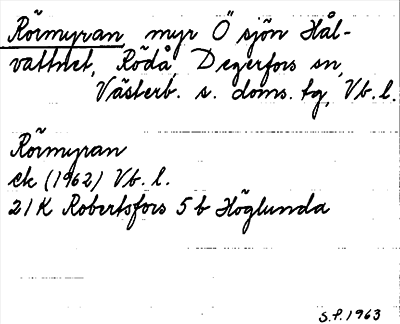 Rörmyran, myr Ö sjön Hål-
vattnet, Rödå, Degerfors sn,
Västerb. s. doms. tg, Vb. l.
Rörmyran
ek (1962) Vb. l.
21K Robertsfors 5 b Höglunda
S.P. 1963